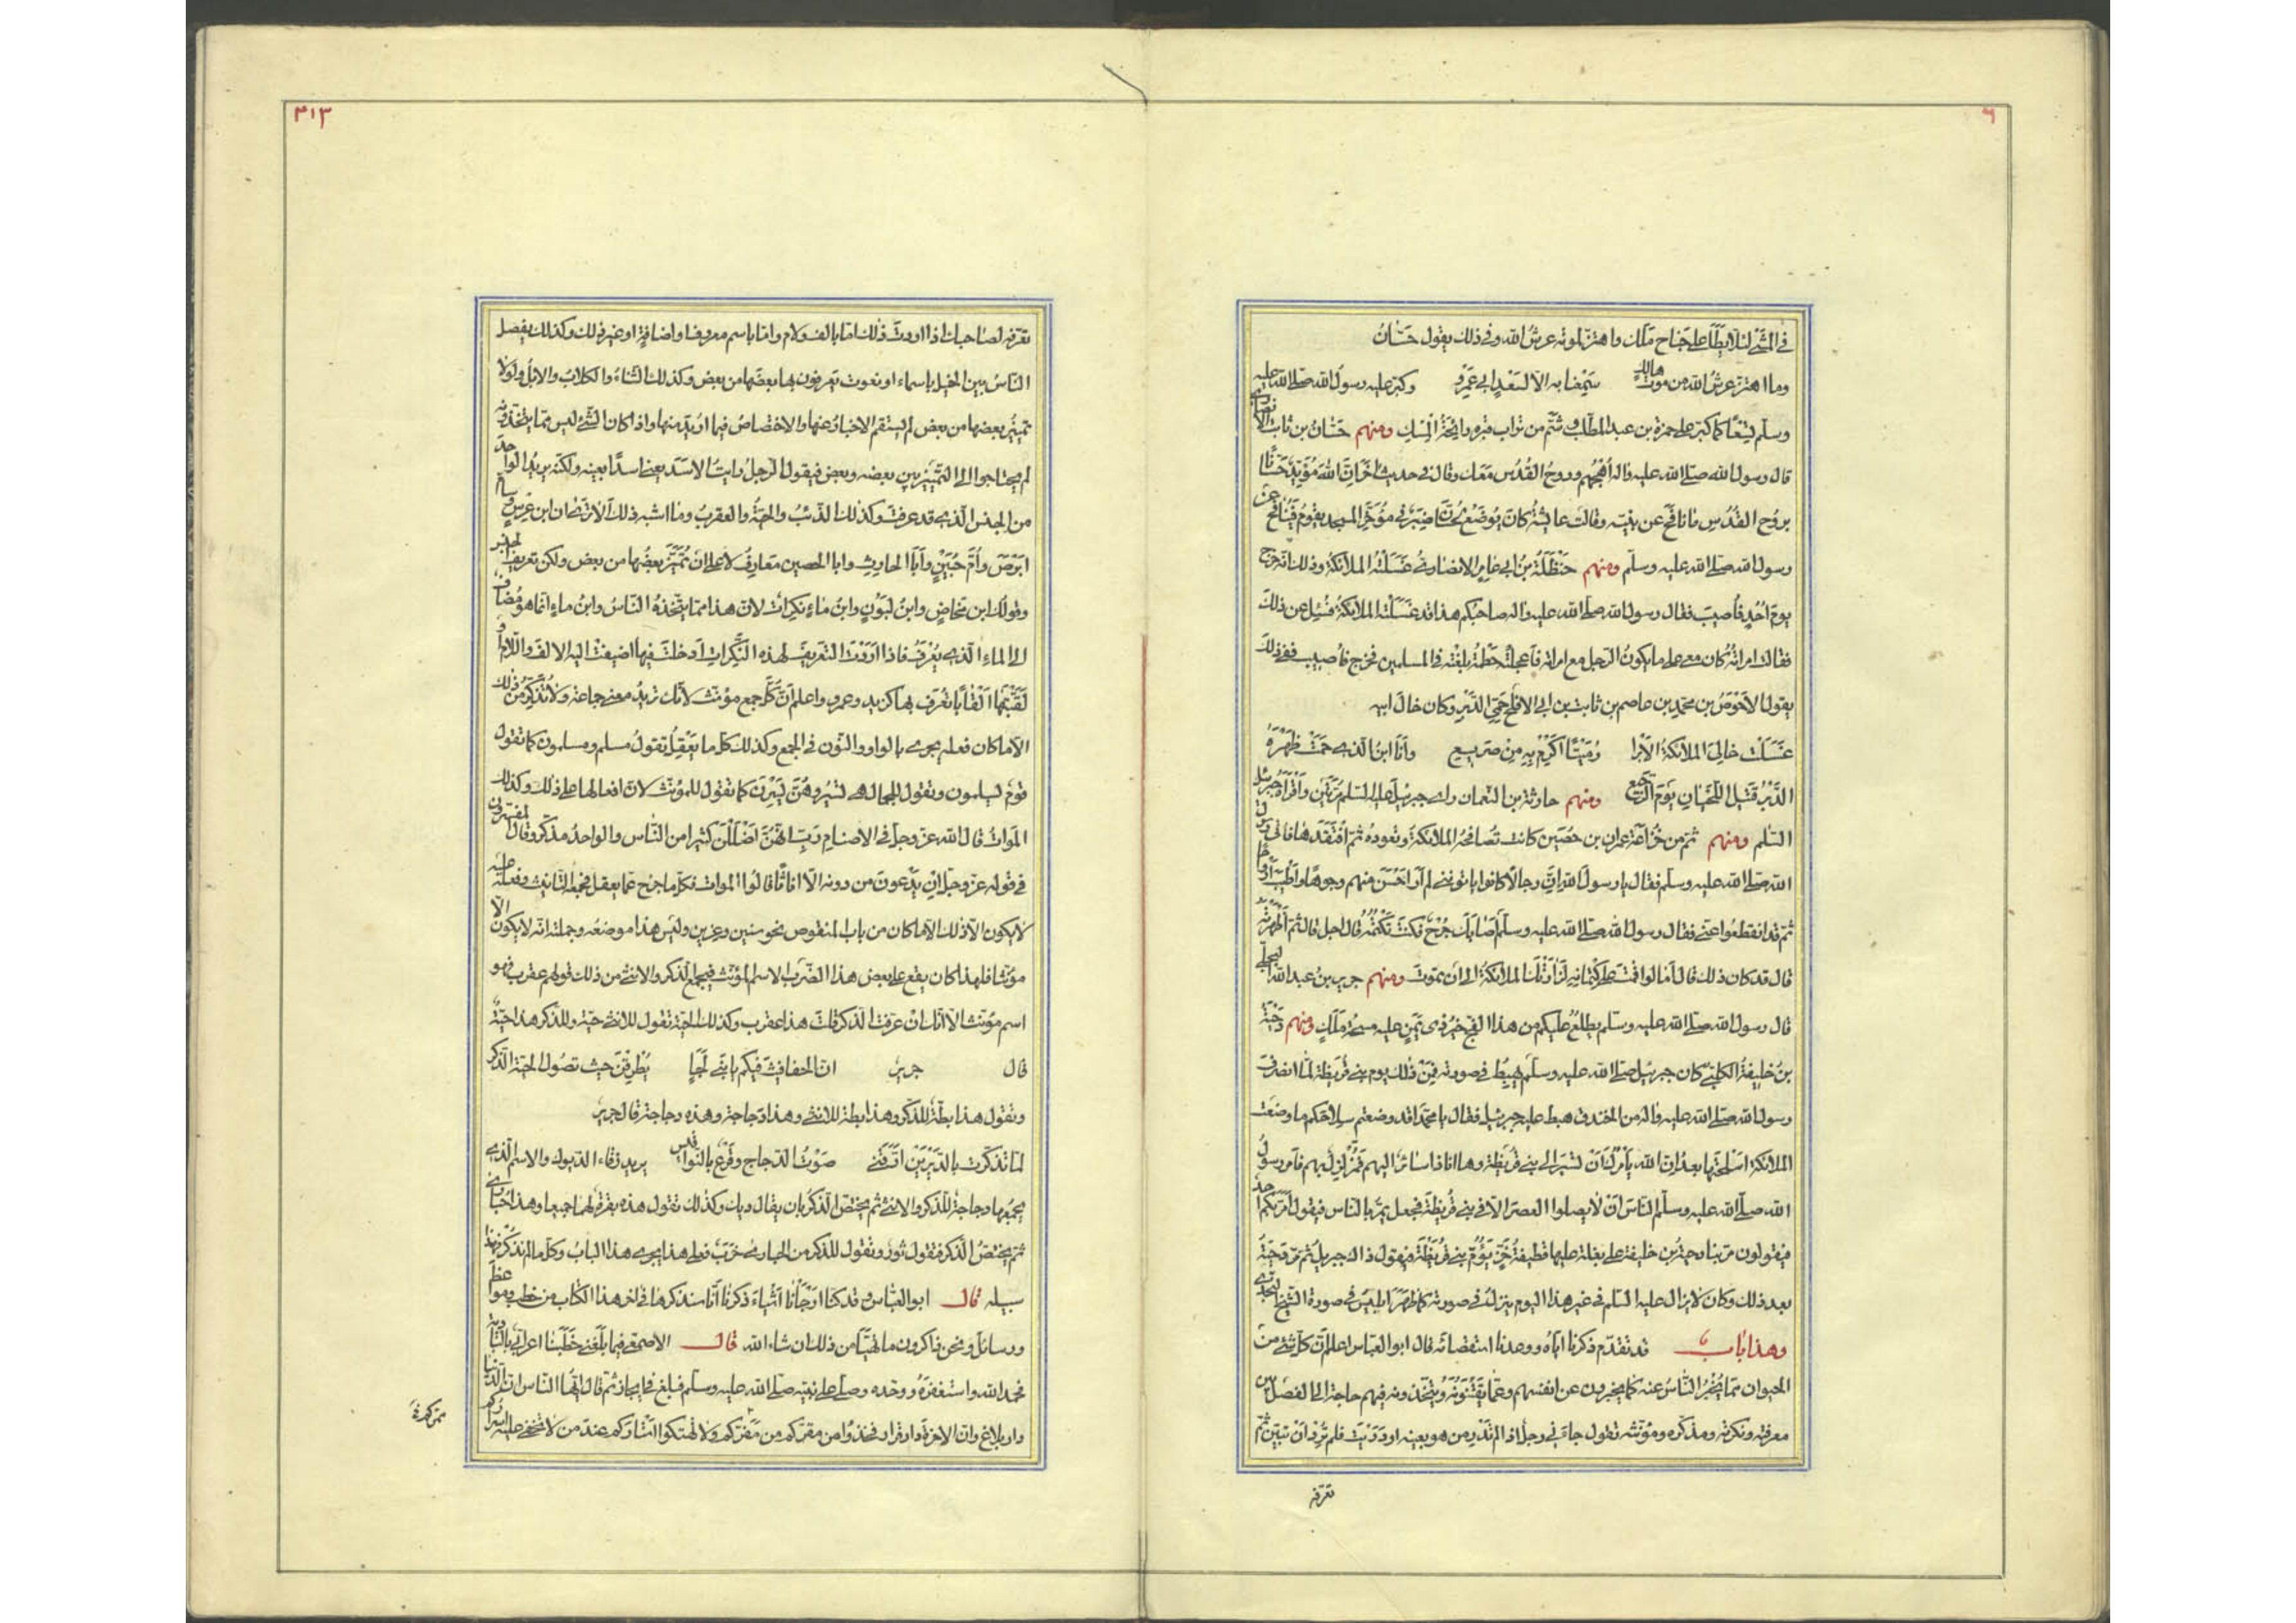 ٦
في المشي لئلا يطأ على جناح ملك واهتز لموته عرش الله وفي ذلك يقول حَسّانُ
وما اهتز عرش الله من موت هالك سَمِعْنا به الا لسَعْدٍ ابي عَمْرٍو وكبّر عليه رسول الله صلى الله عليه
وسلم تِسْعًا كما كبّر على حمزة بن عبد المطلب وشُمّ من تراب قبره رائحة المسك ومنهم حَسّانُ بن ثابت الانصاري
قال رسول الله صلى الله عليه واله اُهْجُهُم وروحُ القُدُس مَعَك وقال في حديث اخر ان الله مُؤَيِّدٌ حَسّانًا
بروُح القُدُس ما نافح عن نبيّه وقالت عائشة كان يُوضَعُ لحسّان منبر في مُؤَخَّر المسجد يقوم فينافح عن
رسول الله صلى الله عليه وسلم ومنهم حَنْظَلَةُ بنُ ابي عامر الانصاري غَسَلَتْهُ الملائكة وذلك انه خرج
يومَ اُحُدٍ فاُصيبَ فقال رسول الله صلى الله عليه واله صاحبكم هذا قد غسّلته الملائكة فسُئِل عن ذلك
فقالت امرأته كان معي على ما يكونُ الرجل مع امرأته فأعجلته حَطْمَةٌ بلغته في المسلمين فخرج فأُصيب ففي ذلك
يقول الاَحْوَصُ بن محمد بن عاصم بن ثابت بن ابي الاقلح حَمِيّ الدَبْر وكان خالَ ابيه
غَسَلَت خاليَ الملائكةُ الاَبْرا رُ مَيّتًا اَكْرِمْ بِهِ مِنْ صَريعِ وأنا ابنُ الذي حَمَتْ ظَهْرَهُ
الدَبْرُ قَتيلِ اللحيانِ يَوْمَ الرجيع ومنهم حارثة بن النعمان رأى جبرئيل عليه السلم مرّتين واَقْرَأه جبرئيل
السلم ومنهم ثم من خُزاعَةَ عمران بن حُصَين كانت تُصافِحُهُ الملائكة وتعوده ثم افتقدها فاتى رسول
الله صلى الله عليه وسلم فقال يا رسول الله ان رجالا كانوا يأتونني لم أرَ اَحْسَنَ منهم وجوهًا ولا اَطْيَبَ ارواحًا
ثم قد انقطعوا عني فقال رسول الله صلى الله عليه وسلم اَصابَك جُرْحٌ فكنتَ تَكْتُمُهُ قال اجل قال ثم اَظْهَرتَه
قال قد كان ذلك قال أما لو اقمتَ على كِتمانِهِ لَزارَتْكَ الملائكةُ الى ان تموتَ ومنهم جرير بنُ عبد الله البجلي
قال رسول الله صلى الله عليه وسلم يطلُعُ عليكم من هذا الفجّ خيرُ ذي يَمَنٍ عليه مسحةُ مَلَكٍ ومنهم دَحْيَةُ
بنُ خليفةَ الكلبي كان جبرئيل صلى الله عليه وسلم يَهْبِطُ في صورته فمن ذلك يوم بني قُرَيظة لمّا انصرفَ
رسول الله صلى الله عليه واله من الخندق هبط عليه جبرئيل فقال يا محمد اقد وضعتم سِلاحَكم ما وضعَت
الملائكة اسلحتها بعدُ ان الله يأمُرُكَ اَن تسير الى بني قُرَيظة وها انا ذا سائرٌ اليهم فمُزَلزِلٌ بهم فأمر رسولُ
الله صلى الله عليه وسلم الناسَ ان لا يصلوا العصرَ الا في بني قُرَيظَةَ فجعل يمرّ بالناس فيقول اَمَرَّ بكم احد
فيقولون مرّ بنا دحيةُ بن خليفة على بغلة عليها قطيفةُ خَزٍّ يَؤُمُّ بني قُرَيْظَةَ فيقول ذاك جبريلُ ثم مَرّ دحيَةُ
بعد ذلك وكان لا يزال عليه السلم في غير هذا اليوم ينزلُ في صورته كما ظَهَرَ ابليسُ في صورة الشيخ النجدي
وهذا باب قد تقدّم ذكرنا ايّاه ووعدنا استقصائه قال ابو العباس اعلم ان كلّ شيء من
الحيوان ممّا يُخْبِرُ الناسُ عنه كما يخبرون عن انفسهم وعمّا يَقتنُونَهُ ويتّخذونه فبهم حاجة الى الفصل بين
معرفته ونكرته ومذكّره ومؤنثه تقول جاءني رجلٌ اذا لم تَدْرِ من هو بعينه او دَرَيْتَ فلم تُرِدْ اَن تبيّن ثم
تعرّفه
٣١٣
تعرّفه لصاحبك اذا اردتَ ذلك امّا بالف ولام واما باسم معروف او اضافةٍ او غير ذلك وكذلك يفصل
الناسُ بين الخيل باسماء او نعوت يعرفون بها بعضَها من بعض وكذلك الشاءُ والكلابُ والابلُ ولولا
تمييزُ بعضها من بعض لم يستقم الاخبارُ عنها والاختصاصُ فيما اُريد منها واذا كان الشيء ليس ممّا يتّخذونه
لم يحتاجوا الى التمييز بين بعضه وبعض فيقول الرجلُ رايتُ الاسَدَ يعني اسدًا بعينه ولكنه يريد الواحد
من الجنس الذي قد عرفتَ وكذلك الذئبُ والحيّةُ والعقربُ وما اشبه ذلك الا ترى ان ابن عِرْسٍ وسامّ
ابرَصَ واُمَّ حُبَيْنٍ واَبا الحارِثِ وابا الحصين مَعارِفُ لا على ان تُمَيِّزَ بعضُها من بعض ولكن تعريفُ الجنس
وقولك ابن مَخاضٍ وابنُ لَبُوْنٍ وابنُ ماءٍ نكِراتٌ لانّ هذا ممّا يتّخذه الناسُ وابنُ ماءٍ انما هو مُضاف
الى الماء الذي يُعْرَفُ فاذا اَرَدْتَ التعريفَ لهذه النّكِراتِ اَدخلتَ فيما اضيفت اليه الالفَ واللامَ او
لَقَّبْتَها اَلْقابًا تُعْرَف بها كزيد وعمرو واعلم اَنّ كُلّ جمعٍ مؤنثٌ لانّك تريدُ معنى جماعة ولا تُذَكِّرُ من ذلك
الا ما كان فعله يجري بالواو والنون في الجمع وكذلك كلّ ما يَعْقِلُ تقولُ مسلم ومسلمون كما تقول
قومٌ يسلمون وتقول للجمال هي تسيرُ وهُنَّ يَسِرْنَ كما تقول للمؤنث لانّ افعالها على ذلك وكذلك
المَواتُ قال الله عزّ وجلّ في الاصنام رَبِّ اِنَّهُنَّ اَضْلَلْنَ كثيرا من الناس والواحدُ مذكّر وقال المفسّرون
في قوله عزّ وجلّ اِن يَدْعون من دونه الا اناثًا قالُوا المَوات فكلّ ما خرج عمّا يعقل فجمعُه التأنيث وفعله عليه
لا يكون الا ذلك الا ما كان من باب المنقوص نحو سنين وعِزين وليس هذا موضعه وجملته انه لا يكون الا
مؤنثا فلهذا كان يقع على بعض هذا الضرب الاسم المؤنث فيجمعُ الذكر والانثى من ذلك قولهم عقرب فهو
اسم مؤنث الا انّك ان عرفت الذكر قلتَ هذا عقرب وكذلك الحيّة تقول للانثى حيّة وللذكر هذا حيّةٌ
قال جريرٌ ان الحفافيث فيكم يا بني لَجَإٍ يُطرِقْنَ حيث تصُول الحيّة الذكر
وتقول هذا بطّةٌ للذكر وهذا بطة للانثى وهذا دَجاجة وهذه دجاجة قال جرير
لمّا تذكّرتُ بالدَّيْرَيْن اَرَّقَني صَوْتُ الدّجاج وقَرْعٌ بالنّواقيس يريد زُقاءَ الديوك والاسم الذي
يجمعُها دجاجة للذكر والانثى ثم يختصّ الذكرُ بان يقال ديك وكذلك تقول هذه بقرةٌ لهما جميعا وهذا حُبارى
ثمّ يختصّ الذكرَ فتقول ثورٌ وتقول للذكر من الحُبارى خَرَبٌ فعلى هذا يجري هذا البابُ وكلّ ما لم نذكُرْهُ فهذا
سبيله قال ابو العبّاس وقد كنّا اَرْجَأنا اَشْياءَ ذكرنا اَنّا سنذكرها في اخر هذا الكتاب من خطب ومواعظ
ورسائل ونحن ذاكرون ما تهيّأ من ذلك ان شاء الله قال الاصمعي فيما بلغني خَطَبَنا اعرابيّ بالبادية
فحمد الله واستغفرَهُ ووحّده وصلّى على نبيّه صلى الله عليه وسلم فبلغ في ايجاز ثم قال ايّها الناس ان الدّنيا
دار بلاغ وانّ الاخرةَ دار قرار فخذُوا من مقرّكم من مَمَرّكم ولا تهتكوا اَستاركم عند من لا تخفى عليه اسراركم
ممركم لمقركم